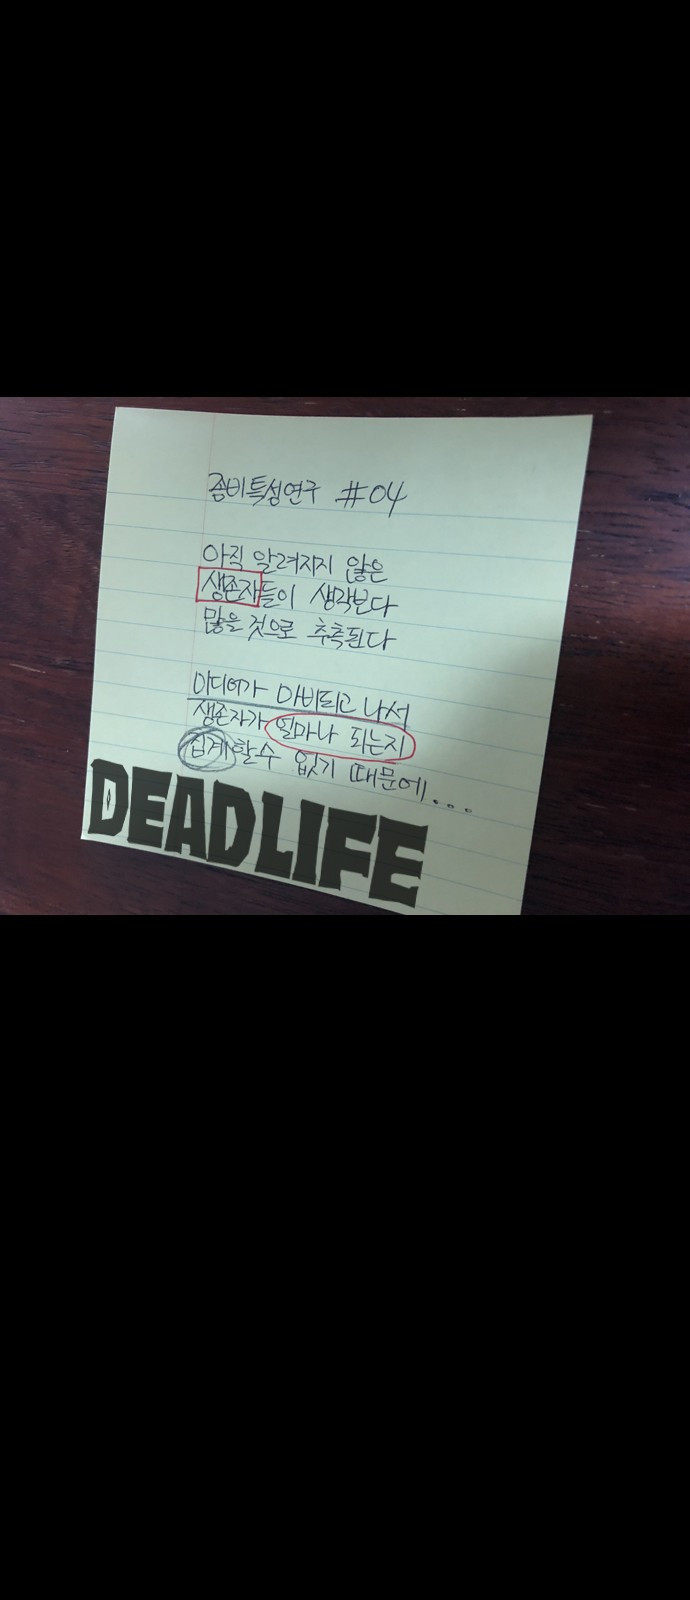 좀비특성연구 #04
아직 알려지지 않은
생존자들이 생각보다
많을 것으로 추측된다
미디어가 마비되고 나서
생존자가 얼마나 되는지
집계할수 없기 때문에...
DEADLIFE